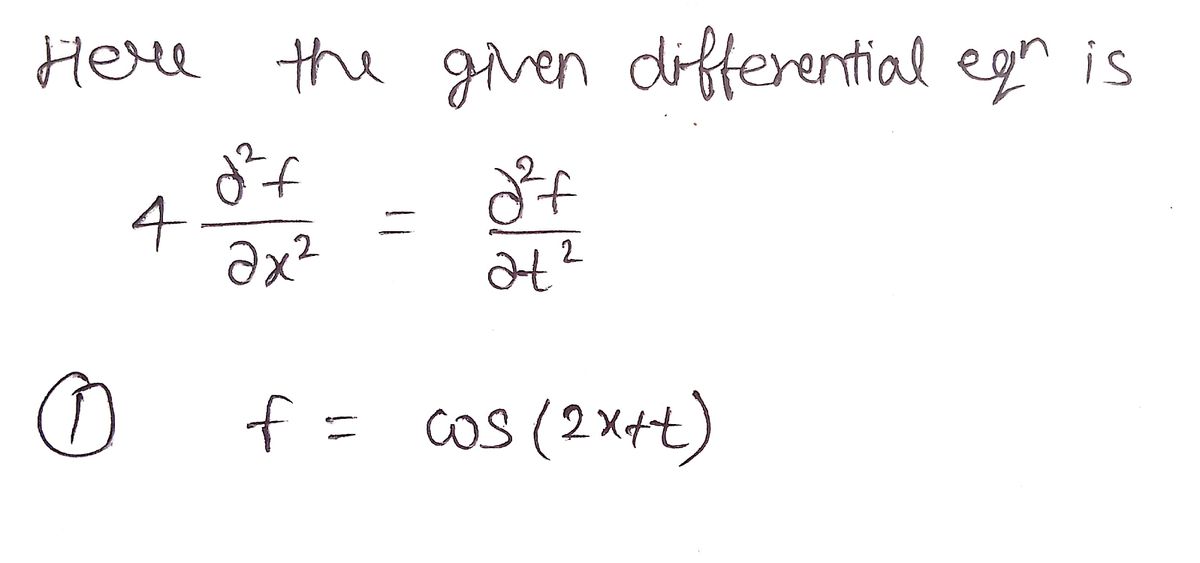 Here the given differential eqn is
4 ∂²f/∂x² = ∂²f/∂t²
① f = cos (2x+t)